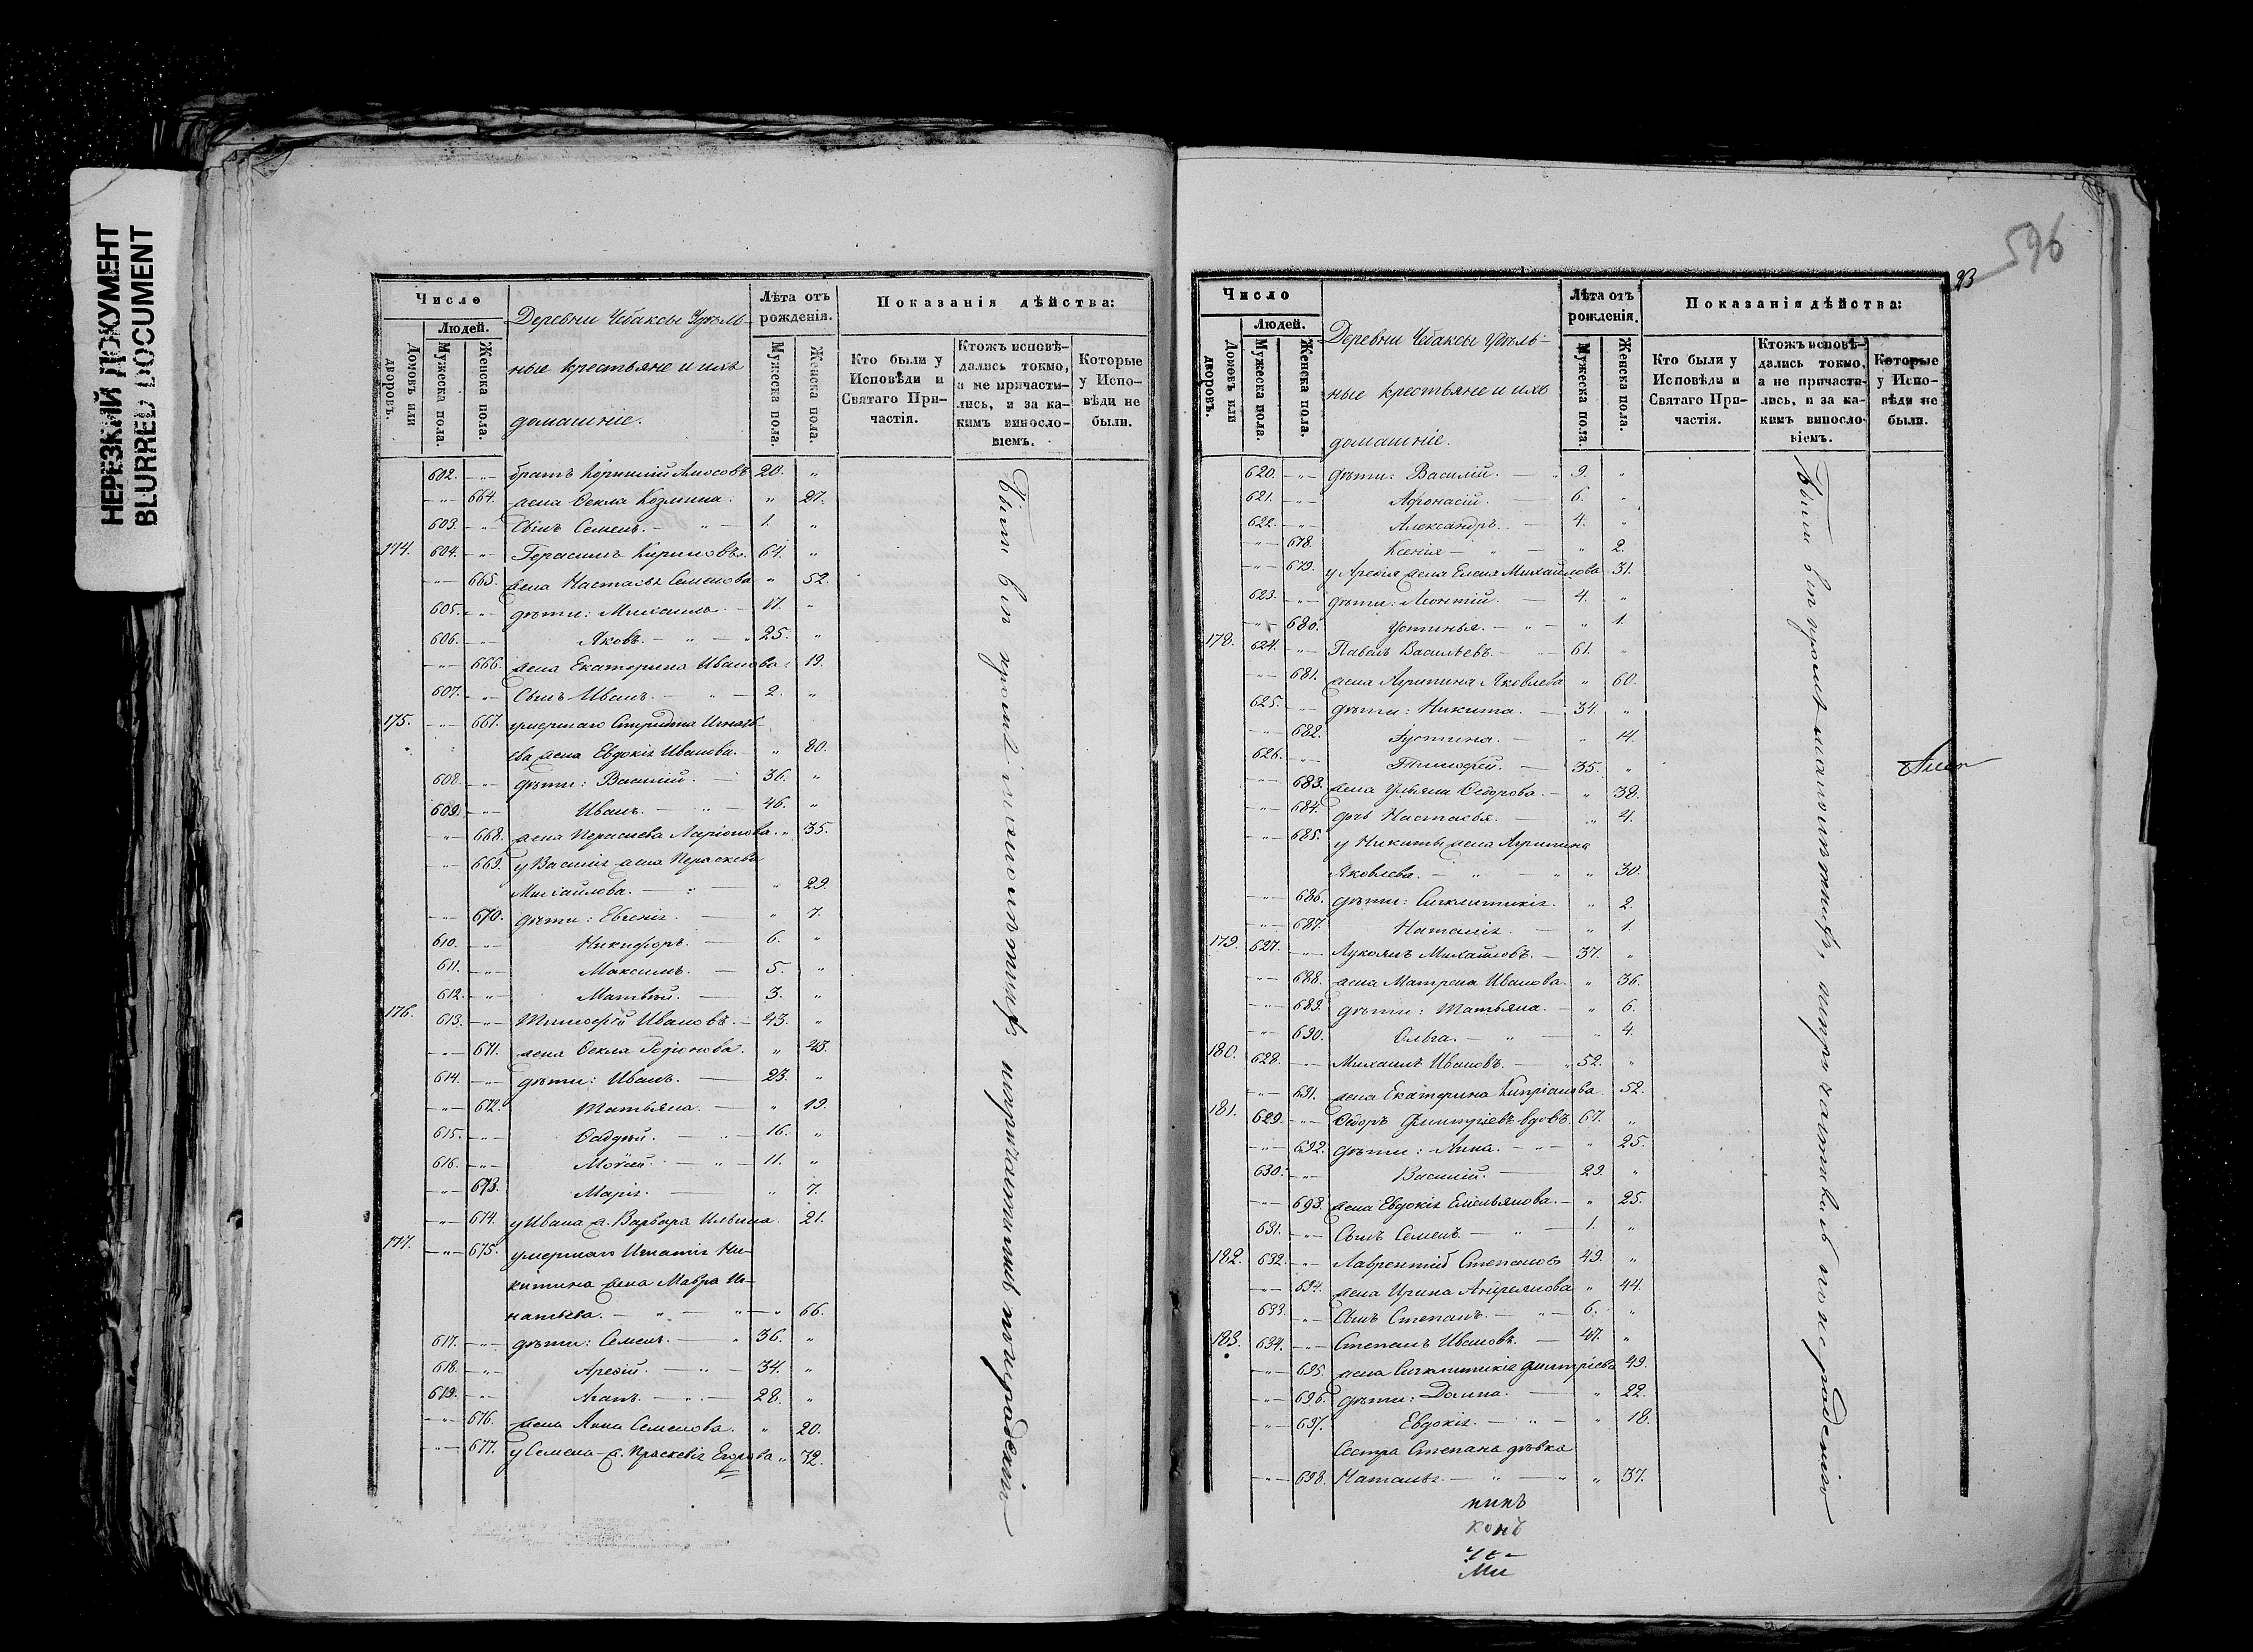 НЕРЕЗКИЙ ДОКУМЕНТ
BLURRED DOCUMENT
Число
Людей.
Домовъ или дворовъ.
Мужеска пола.
Женска пола.
Деревни Чебаксы Удѣль-
ные крестьяне и ихъ
домашніе.
Лѣта отъ рожденія.
Мужеска пола.
Женска пола.
Показанія дѣйства:
Кто были у Исповѣди и Святаго При-частія.
Ктожъ исповѣ-дались токмо, а не причасти-лись, и за ка-кимъ виносло-віемъ.
Которые у Испо-вѣди не были.
602. братъ Амосовъ 20. "
664. жена Ѳекла Козмина. " 21.
603. Сынъ Семенъ. 1. "
174. 604. Герасимъ Кириловъ. 64. "
665. жена Настасья Семенова " 52.
605. дѣти: Михаилъ. "
606. Яковъ. 25. "
666. жена Екатерина Иванова. 19.
607. Сынъ Иванъ. 2. "
175. 667. умершаго Спиридона Игнать-
ева жена Евдокія Иванова. " 80.
608. дѣти: Василій. 36. "
609. Иванъ. 46. "
668. жена Пераскева Ларіонова. " 35.
669. у Василія жена Пераскева
Михайлова. " 29.
670. дѣти: Евгенія. " 7.
610. Никифоръ. 6. "
611. Максимъ. 5. "
612. Матвѣй. 3. "
176. 613. Тимофей Ивановъ. 43. "
671. жена Ѳекла Родіонова. " 43.
614. дѣти: Иванъ. 23. "
672. Татьяна. " 19.
615. Ѳаддѣй. 16. "
616. Моѵсей. 11. "
673. Марія. " 7.
674. у Ивана ж. Варвара Ильина. 21.
177. 675. умершаго Игнатія Ни-
китина жена Мавра Иг-
натьева. " 66.
617. дѣти: Семенъ. 36. "
618. Арефій. 34. "
619. Агапъ. 28. "
676. жена Анна Семенова. " 20.
677. у Семена ж. Праскевія Егорова "
Были вси кромѣ малолѣтнихъ
596
93
Число
Людей.
Домовъ или дворовъ.
Мужеска пола.
Женска пола.
Деревни Чебаксы Удѣль-
ные крестьяне и ихъ
домашніе.
Лѣта отъ рожденія.
Мужеска пола.
Женска пола.
Показанія дѣйства:
Кто были у Исповѣди и Святаго При-частія.
Ктожъ исповѣ-дались токмо, а не причасти-лись, и за ка-кимъ виносло-віемъ.
Которые у Испо-вѣди не были.
620. дѣти: Василій. 9. "
621. Афонасій. 6. "
622. Александръ. 4. "
678. Ксенія " 2.
679. у Арефія жена Елена Михайлова 31.
623. дѣти: Леонтій. 4. "
680. Устинья. " 1.
178. 624. Павелъ Васильевъ. 61. "
681. жена Агрипина Яковлева " 60.
625. дѣти: Никита. 34. "
682. Іустина. " 14.
626. Тимофей. 35. "
683. жена Ульяна Ѳедорова. " 38.
684. дочь Настасья. " 4.
685. у Никиты жена Агрипина
Яковлева. " 30.
686. дѣти: Сигклитикія. " 2.
687. Наталія. " 1.
179. 627. Лукоянъ Михайловъ. 37. "
688. жена Матрена Иванова. " 36.
689. дѣти: Татьяна. " 6.
690. Ольга. " 4.
180. 628. Михаилъ Ивановъ. 52. "
691. жена Екатерина Кипріанова. 52.
181. 629. Ѳедоръ Димитріевъ вдовъ. 67. "
692. дѣти: Анна. " 25.
630. Василій. 29. "
693. жена Евдокія Емельянова. " 25.
631. Сынъ Семенъ. 1. "
182. 632. Лаврентій Степановъ 49. "
694. жена Ирина Андреянова " 44.
633. Сынъ Степанъ. 6. "
183. 634. Степанъ Ивановъ. 47. "
695. жена Сигклитикія Димитріева 49.
696. дѣти: Домна. " 22.
697. Евдокія. " 18.
Сестра Степана дѣвка
698. Наталья. " 37.
Были вси кромѣ малолѣтнихъ